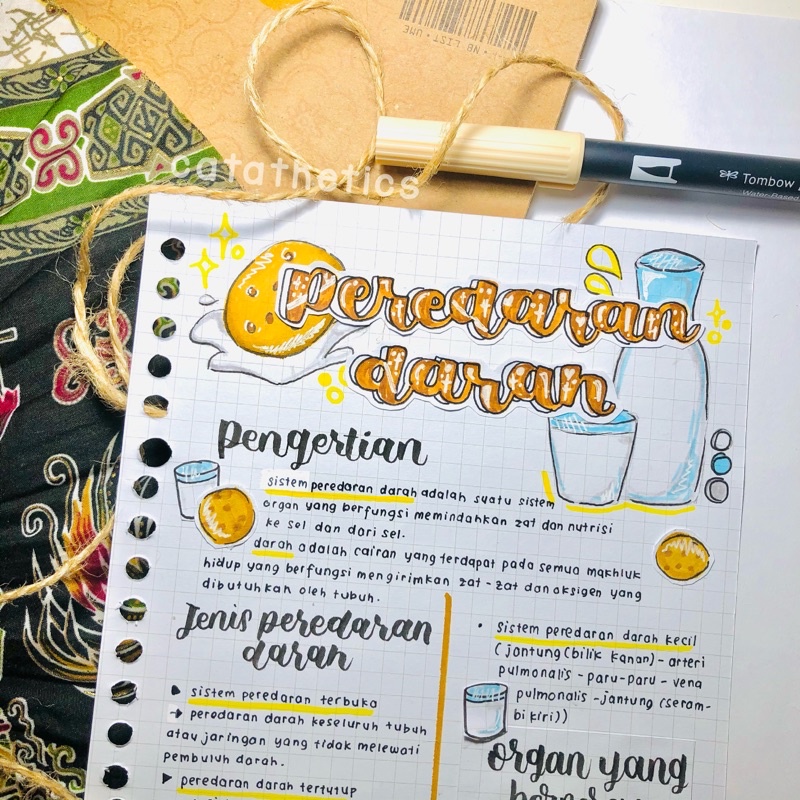 NB LIST • UME
catathetics
Tombow
Water-Based
peredaran
darah
pengertian
sistem peredaran darah adalah suatu sistem
organ yang berfungsi memindahkan zat dan nutrisi
ke sel dan dari sel.
darah adalah cairan yang terdapat pada semua makhluk
hidup yang berfungsi mengirimkan zat-zat dan oksigen yang
dibutuhkan oleh tubuh.
Jenis peredaran
darah
sistem peredaran terbuka
→ peredaran darah keseluruh tubuh
atau jaringan yang tidak melewati
pembuluh darah.
peredaran darah tertutup
• sistem peredaran darah kecil
(jantung (bilik kanan) - arteri
pulmonalis - paru-paru - vena
pulmonalis - jantung (seram-
bi kiri))
organ yang